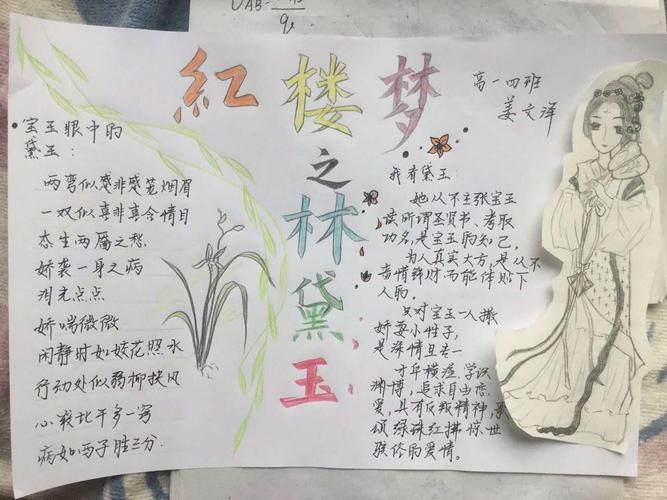 UAB=
q
红楼梦
之
林
黛
玉
高一四班
姜文泽
宝玉眼中的
黛玉：
两弯似蹙非蹙笼烟眉
一双似喜非喜含情目
态生两靥之愁
娇袭一身之病
泪光点点
娇喘微微
闲静时如姣花照水
行动处似弱柳扶风
心较比干多一窍
病如西子胜三分
我看黛玉：
她从不主张宝玉
读所谓圣贤书、考取
功名，是宝玉的知己，
为人真实大方，是从不
吝惜钱财而能体贴下
人的。
只对宝玉一人撒
娇耍小性子，
是深情且专一
才华横溢、学识
渊博，追求自由恋
爱，具有反叛精神，歌
颂绿珠红拂惊世
骇俗的爱情。